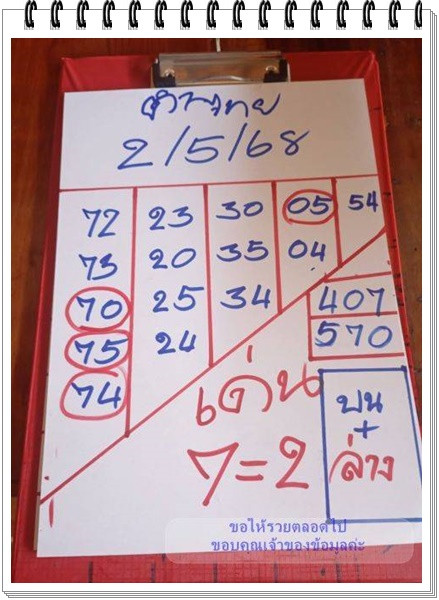 2/5/68
72 23 30 05 54
73 20 35 04
70 25 34 407
75 24 570
74
เด่น
7=2
บน
+
ล่าง
ขอให้รวยตลอดไป
ขอบคุณเจ้าของข้อมูลค่ะ